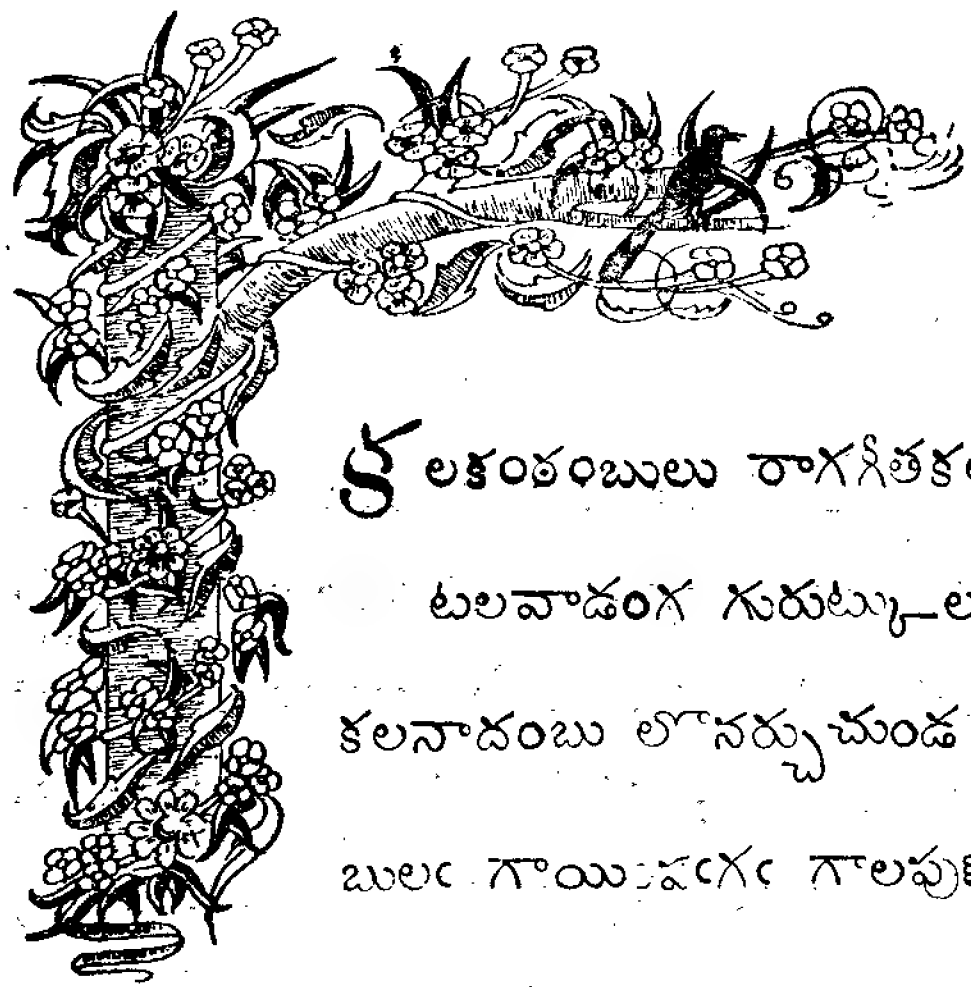 కలకంఠంబులు రాగగీతక
టలవాడంగ గురుట్కు—ల
కలనాదంబు లొనర్చుచుండ
బులఁ గాలపు